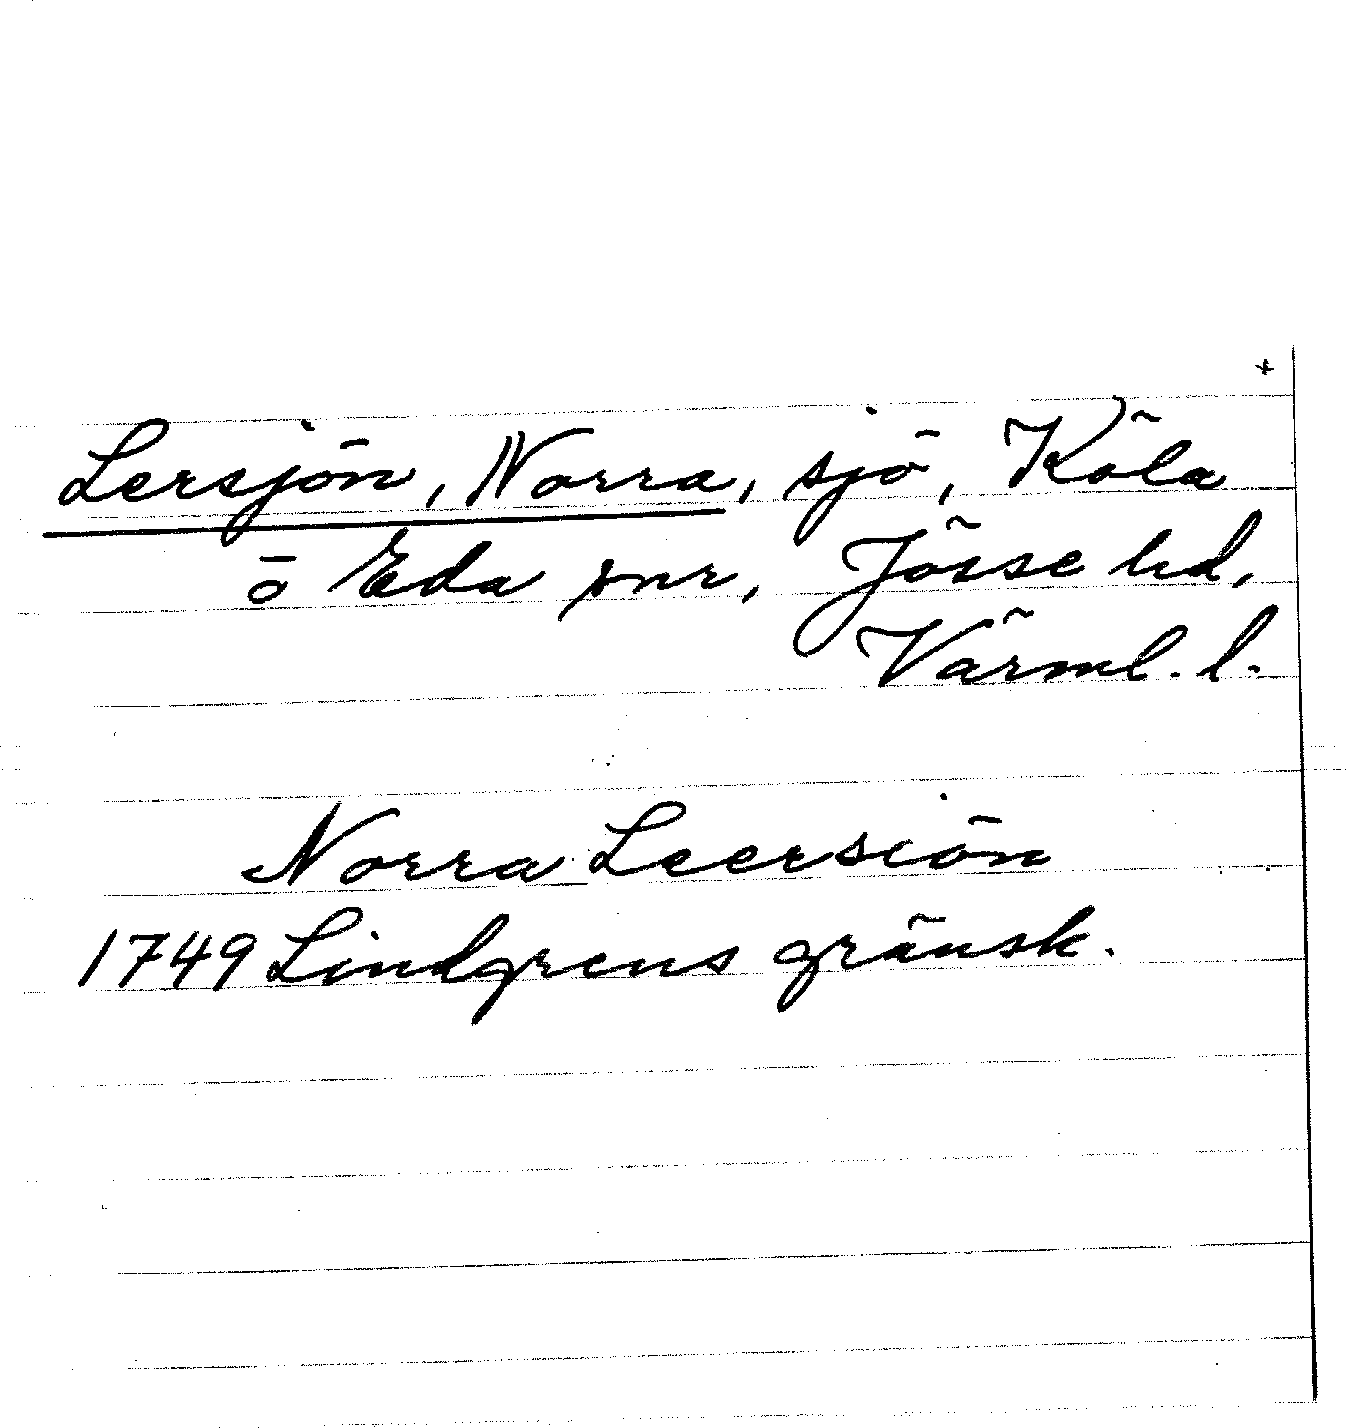 +
Lersjön, Norra, sjö, Köla
o Eda snr, Jösse hd,
Värml. l.
Norra Leersiön
1749 Lindgrens gränsk.